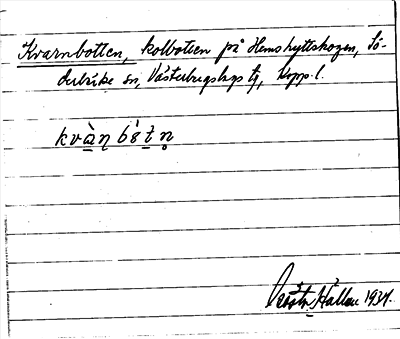 Kvarnbotten, kolbotten på Hemshyttskogen, Sö-
derbärke sn, Västerbergslags tg, Kopp. l.
kvàn bòtn
Hållen 1934.